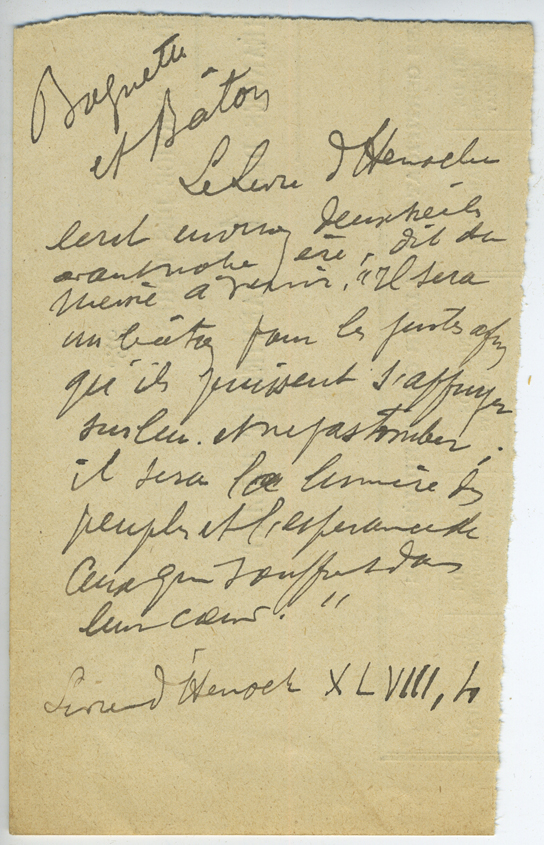 Baguette
et Bâton
Le Livre d'Henoch
écrit environ deux siècles
avant notre ère, dit du
Messie à venir, "Il sera
un bâton pour les justes afin
qu'ils puissent s'appuyer
sur lui et ne pas tomber ;
il sera la lumière des
peuples et l'espérance de
ceux qui souffrent dans
leur cœur. "
Livre d'Henoch XLVIII, 4